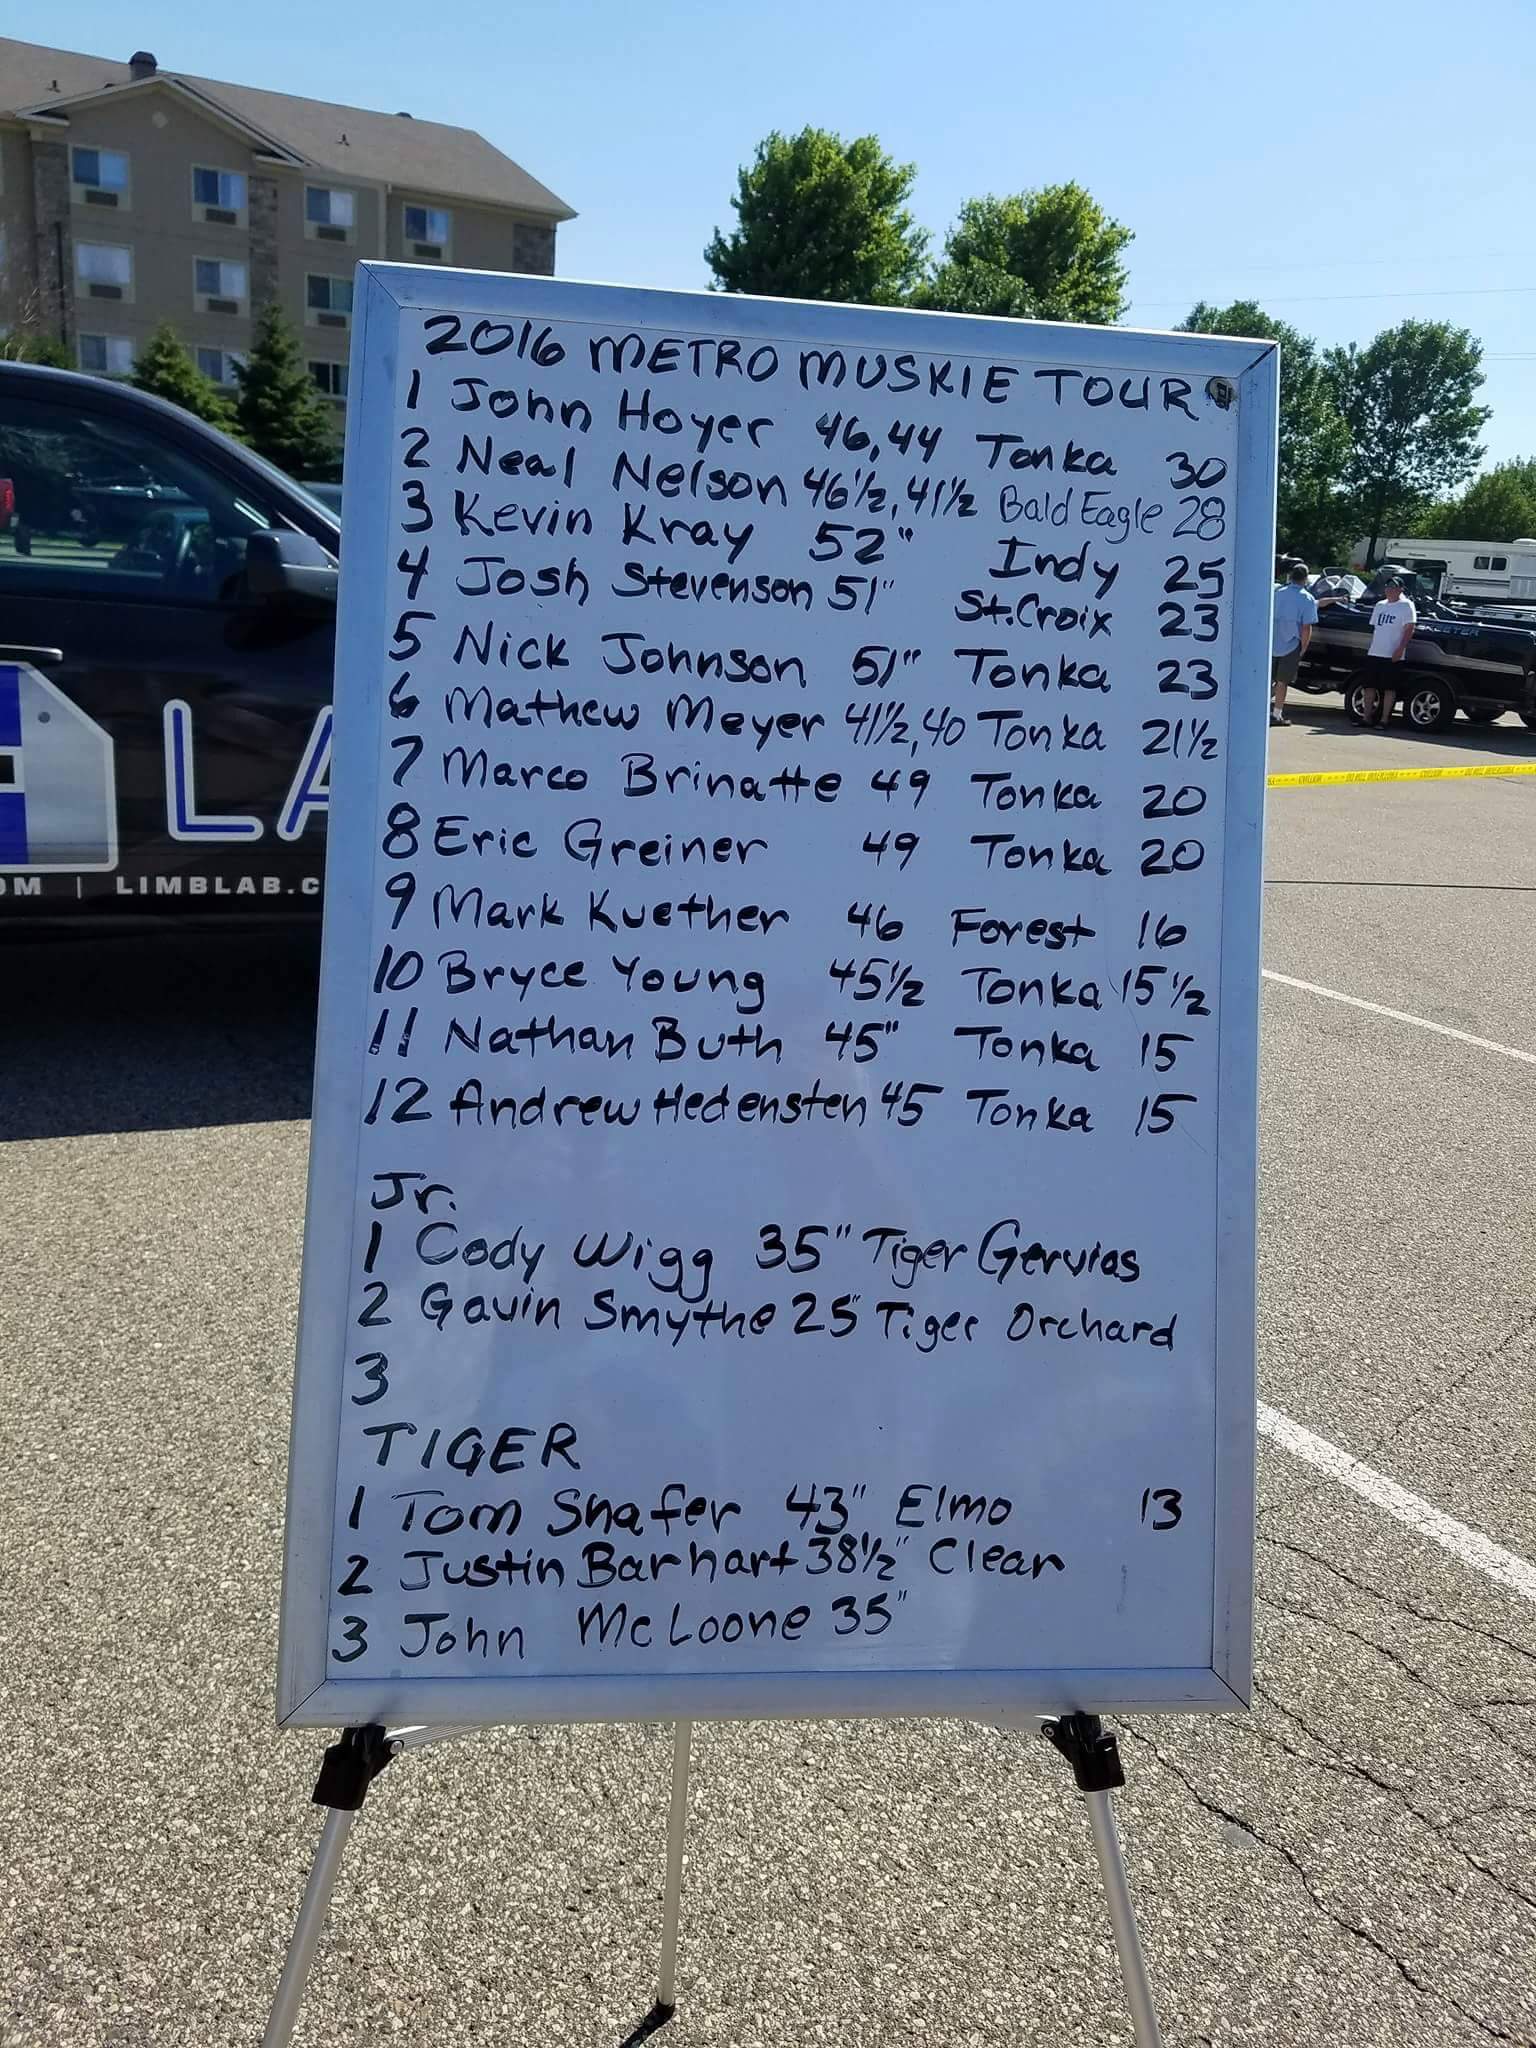 2016 METRO MUSKIE TOUR
1 John Hoyer 46,44 Tonka 30
2 Neal Nelson 46½,41½ Bald Eagle 28
3 Kevin Kray 52" Indy 25
4 Josh Stevenson 51" St.Croix 23
5 Nick Johnson 51" Tonka 23
6 Mathew Meyer 41½,40 Tonka 21½
7 Marco Brinatte 49 Tonka 20
8 Eric Greiner 49 Tonka 20
9 Mark Kuether 46 Forest 16
10 Bryce Young 45½ Tonka 15½
11 Nathan Buth 45" Tonka 15
12 Andrew Hedensten 45 Tonka 15
Jr.
1 Cody Wigg 35" Tiger Gervias
2 Gavin Smythe 25" Tiger Orchard
3
TIGER
1 Tom Shafer 43" Elmo 13
2 Justin Barhart 38½" Clear
3 John McLoone 35"
LA
OM | LIMBLAB.C
Lite
SKEETER